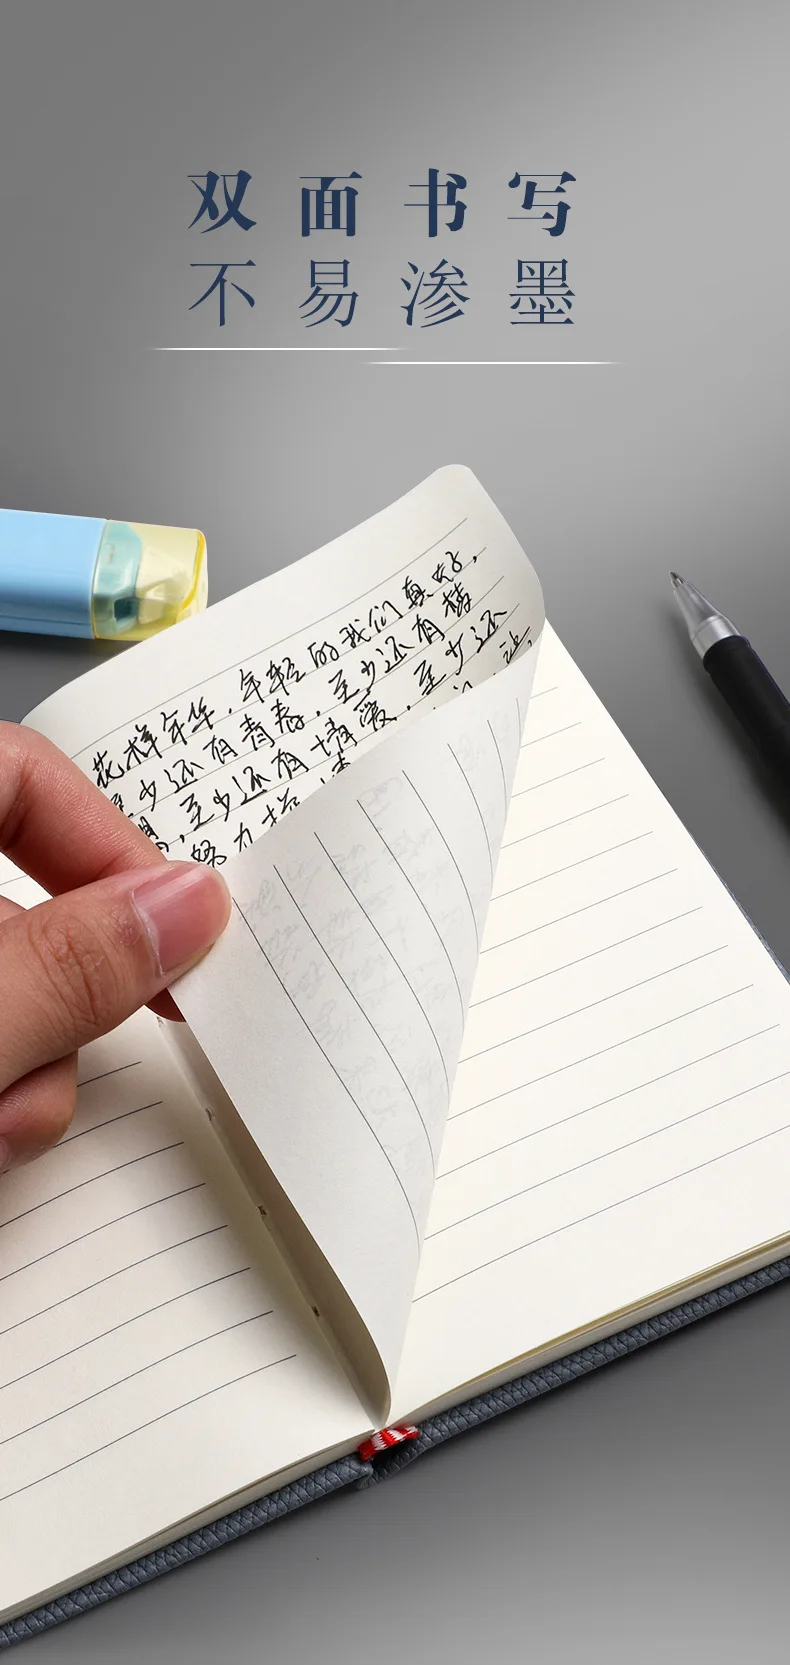 双面书写
不易渗墨
花样年华,年轻的我们真好,
至少还有青春,至少还有梦
,至少还有情爱,至少还
努力